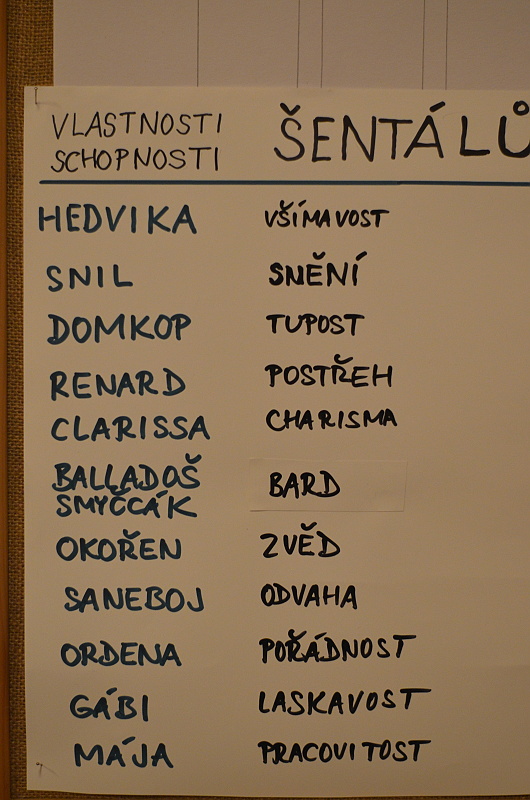 VLASTNOSTI
SCHOPNOSTI
ŠENTÁLŮ
HEDVIKA VŠÍMAVOST
SNIL SNĚNÍ
DOMKOP TUPOST
RENARD POSTŘEH
CLARISSA CHARISMA
BALLADOŠ
SMYČCÁK BARD
OKOŘEN ZVĚD
SANEBOJ ODVAHA
ORDENA POŘÁDNOST
GÁBI LASKAVOST
MÁJA PRACOVITOST